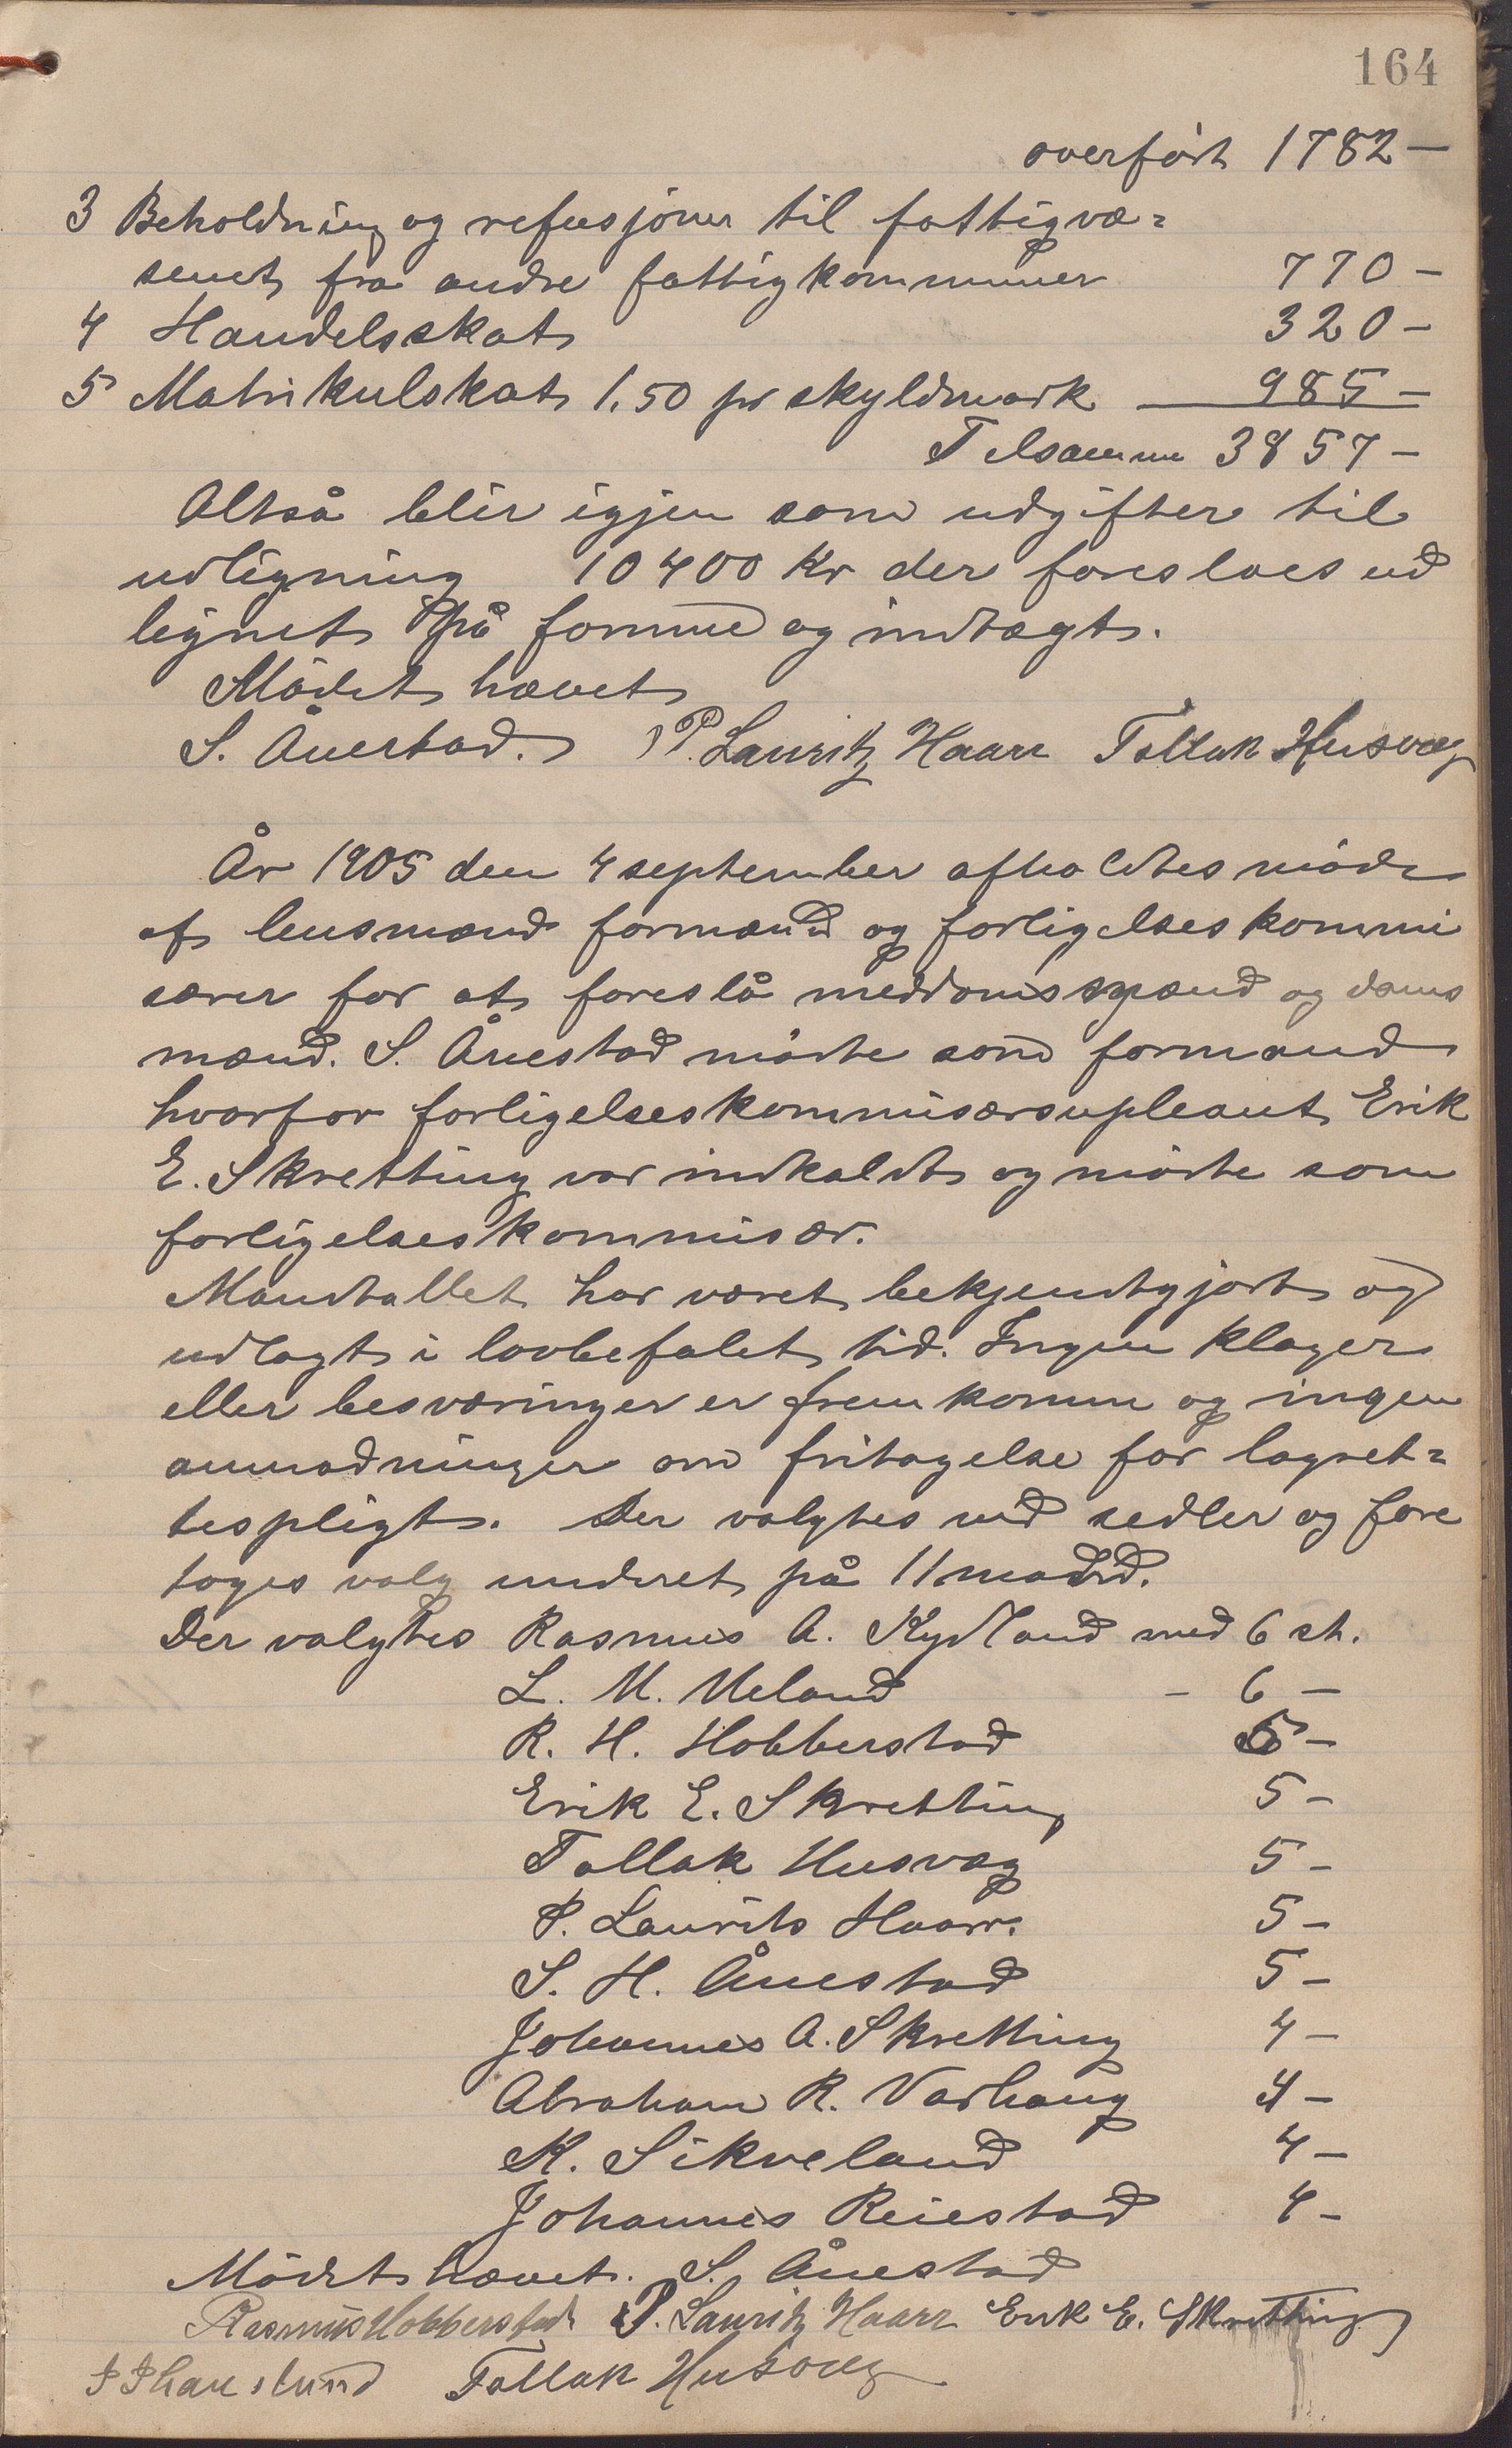 164
overført 1782 —
3 Beholdning og refusjoner til fattigvæ=
senet fra andre fattigkommuner 770 —
4 Handelsskat 320 —
5 Matrikulskat 1,50 pr skyldmark 985 —
Tilsamme 3857 —
Altså blir igjen som udgifter til
udligning 10400 Kr der foreslaes ud
lignet på formue og indtægt.
Mødet hævet
S. Ånestad. P. Lauritz Haarr Tollak Husvæg
År 1905 den 4 september afholdtes møde
af lensmand formænd og forligelseskommi
særer for at foreslå meddomsmænd og doms
mænd. S. Ånestad mødte som formand
hvorfor forligelseskommisærsupleant Erik
E. Skretting var indkaldt og mødte som
forligelseskommisær.
Mandtallet har været bekjendtgjort og
udlagt i lovbefalet tid. Ingen klager
eller besværinger er fremkomne og ingen
anmodninger om fritagelse for lagret=
tespligt. Der valgtes ved sedler og fore
toges valg underet på 11 mand.
Der valgtes Rasmus A. Kydland med 6 st.
L. M. Meland – 6 —
R. H. Hobberstad 5 —
Erik E. Skretting 5 —
Tollak Husvæg 5 —
P. Laurits Haarr. 5 —
S. H. Ånestad 5 —
Johannes A. Skretting 4 —
Abraham R. Varhaug 4 —
K. Sikveland 4 —
Johannes Reiestad 4 —
Mødet hævet. S. Ånestad
Rasmus Hobberstad P. Lauritz Haarr Erik E. Skretting
Tollak Husvæg